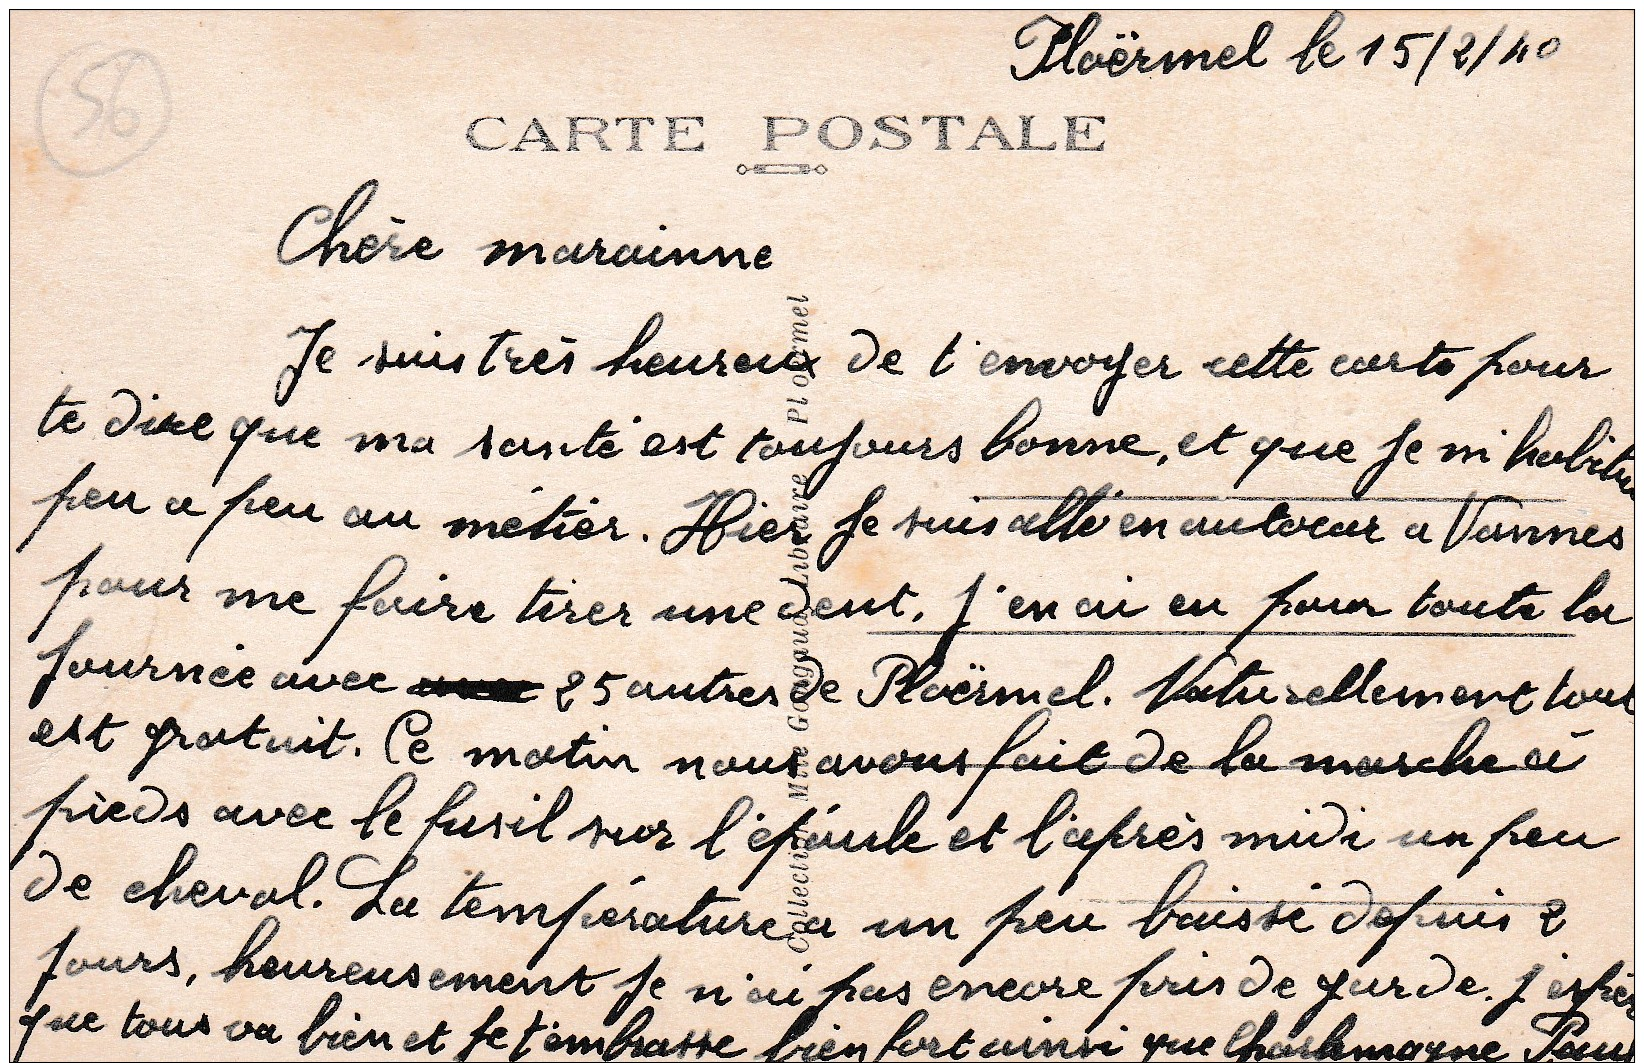 Ploërmel le 15/2/40
56
CARTE POSTALE
Chère marainne
Je suis très heureux de t'envoyer cette carte pour
te dire que ma santé est toujours bonne, et que je m'habitu
peu a peu au métier. Hier je suis allé en autocar a Vannes
pour me faire tirer une dent. J'en ai eu pour toute la
journée avec 25 autres de Ploërmel. Naturellement tout
est gratuit. Ce matin nous avons fait de la marche à
pieds avec le fusil sur l'épaule et l'après midi un peu
de cheval. La température a un peu baissé depuis 2
jours, heureusement je n'ai pas encore pris de garde. J'espèr
que tous va bien et je t'embrasse bien fort ainsi que Charlemagne Paul
Collection Mme Gougaud Libraire Ploermel